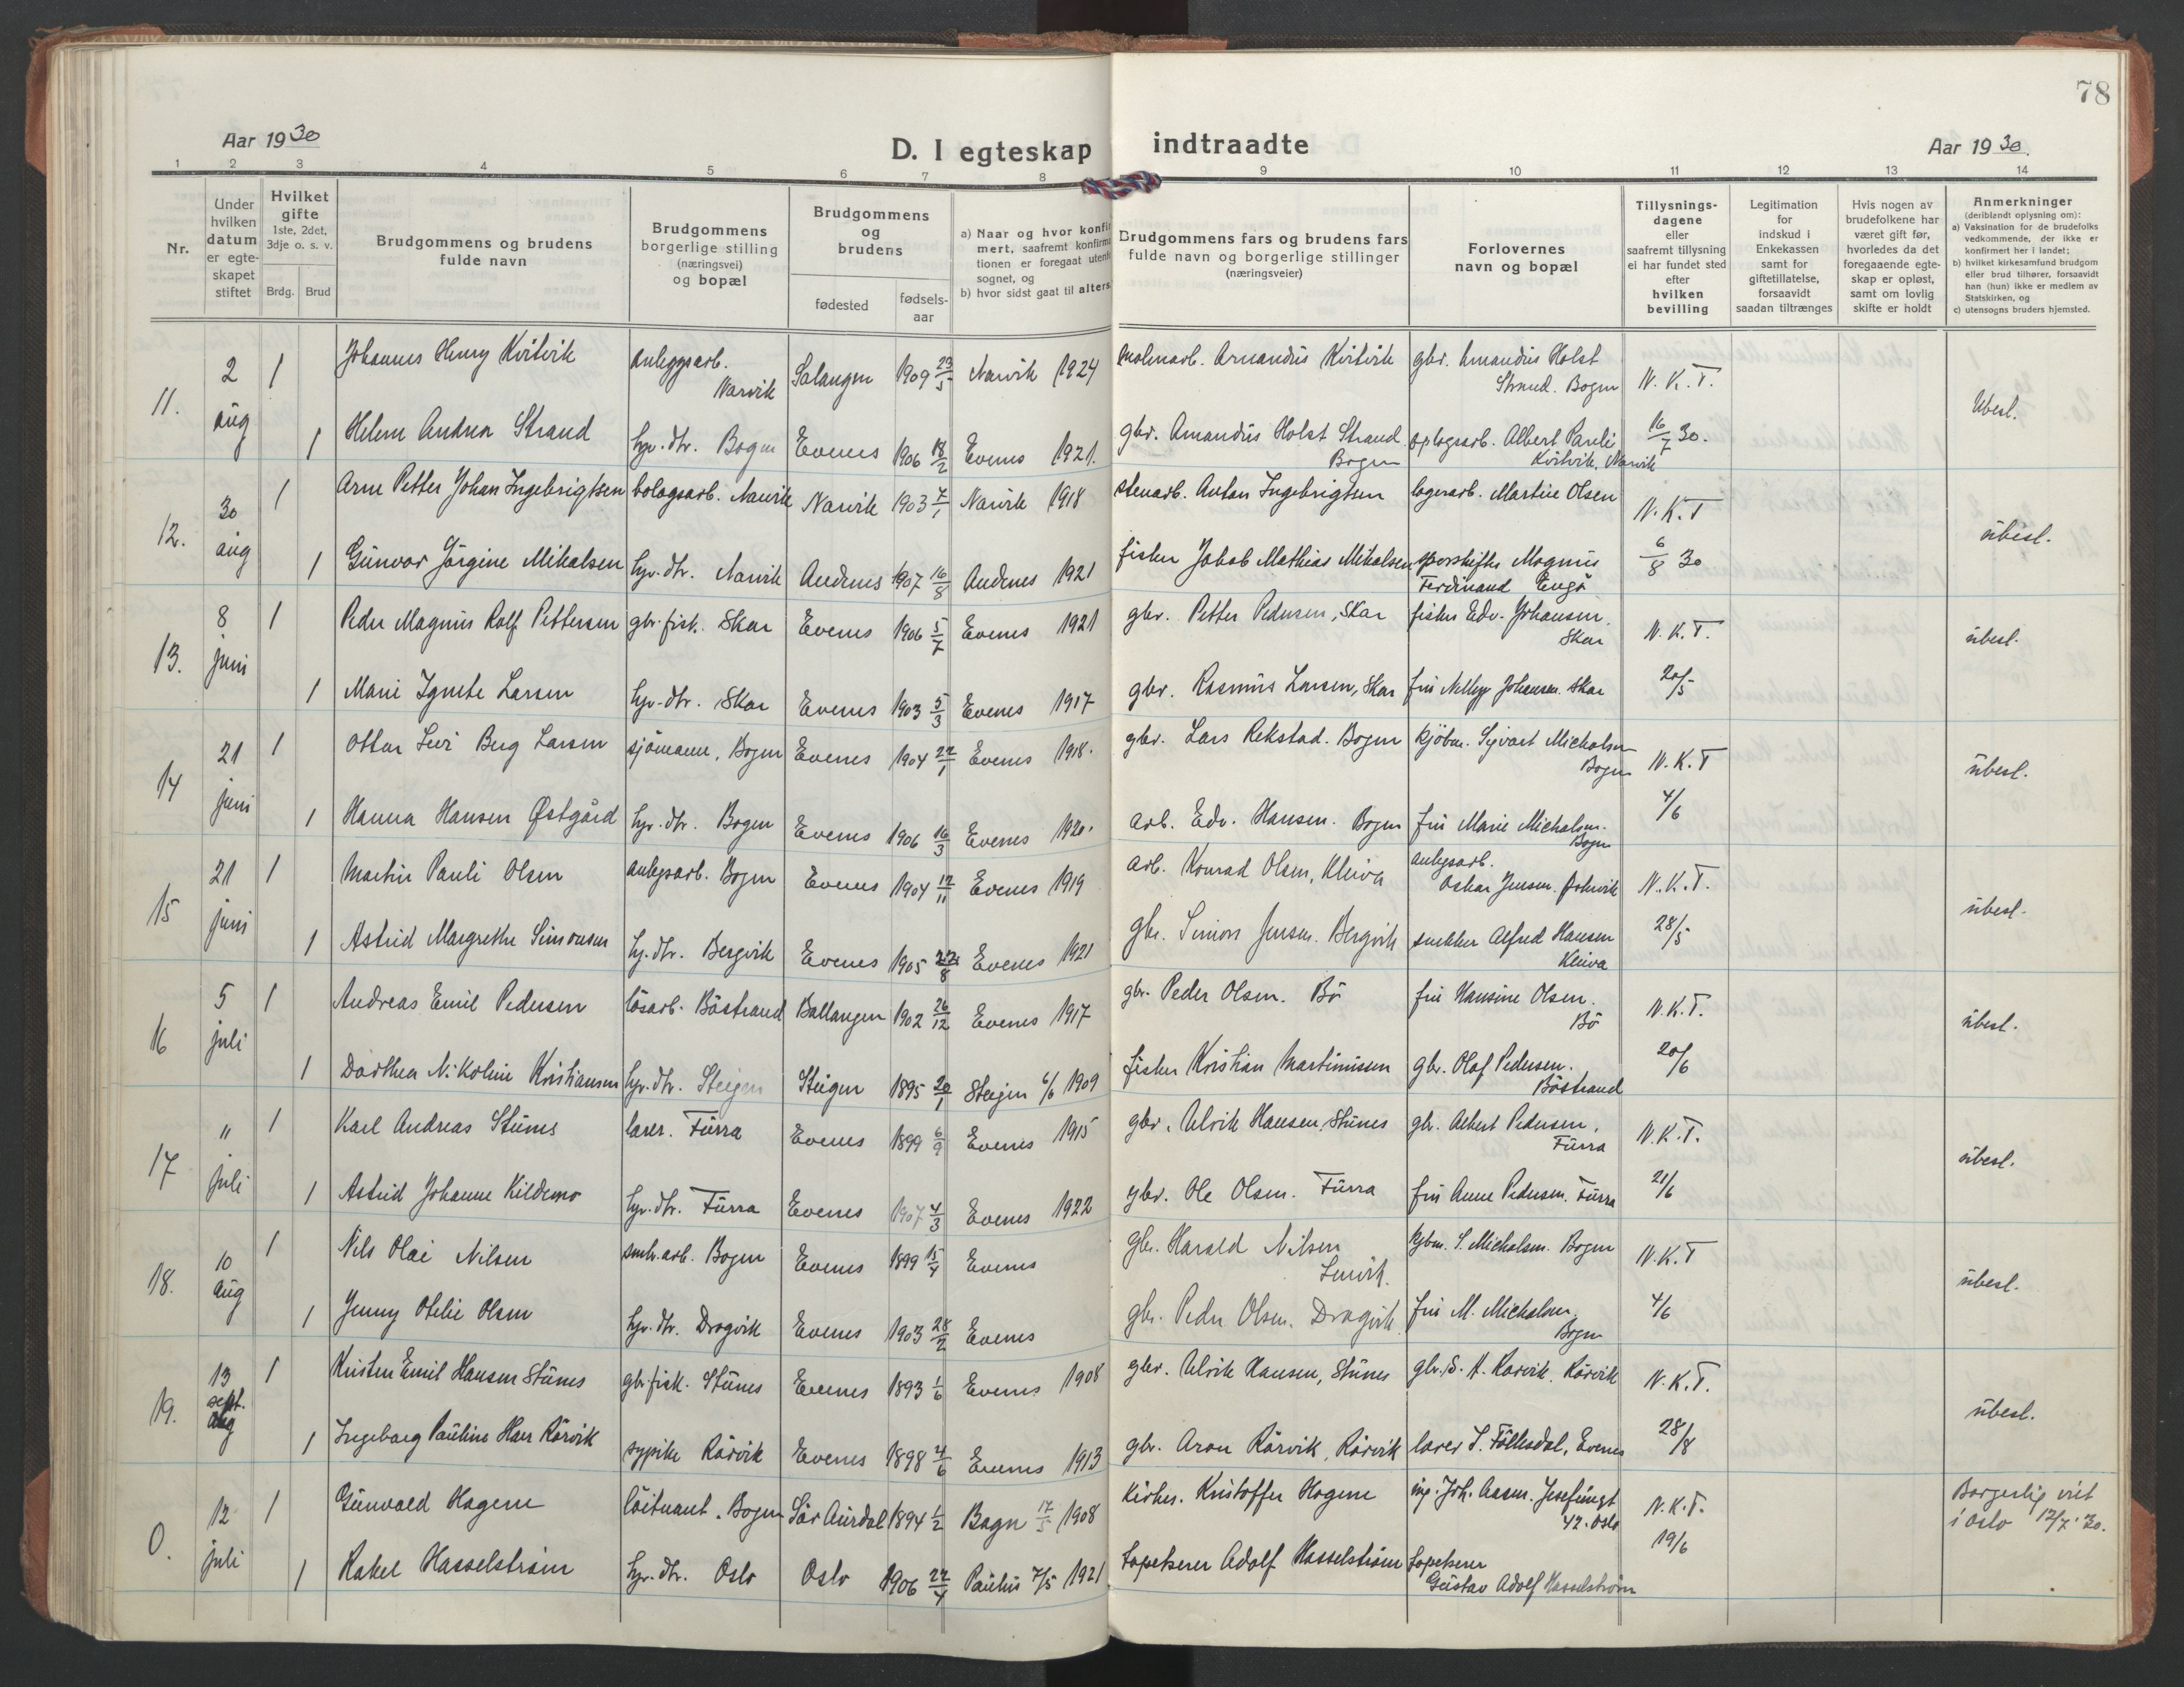 78
Aar 1930
D. I egteskap indtraadte
Aar 1930.
1 2 3 4 5 6 7 8 9 10 11 12 13 14
Nr.
Under hvilken datum er egte-skapet stiftet
Hvilket gifte 1ste, 2det, 3dje o. s. v.
Brdg. Brud
Brudgommens og brudens fulde navn
Brudgommens borgerlige stilling (næringsvei) og bopæl
Brudgommens og brudens
fødested
fødsels-aar
a) Naar og hvor konfir
mert, saafremt konfirma
tionen er foregaat utenfo
sognet, og
b) hvor sidst gaat til alters.
Brudgommens fars og brudens fars fulde navn og borgerlige stillinger (næringsveier)
Forlovernes navn og bopæl
Tillysnings-dagene eller saafremt tillysning ei har fundet sted efter hvilken bevilling
Legitimation for indskud i Enkekassen samt for giftetillatelse, forsaavidt saadan tiltrænges
Hvis nogen av brudefolkene har været gift før, hvorledes da det foregaaende egte-skap er opløst, samt om lovlig skifte er holdt
Anmerkninger
(deriblandt oplysning om):
a) Vaksination for de brudefolks vedkommende, der ikke er konfirmert her i landet;
b) hvilket kirkesamfund brudgom eller brud tilhører, forsaavidt han (hun) ikke er medlem av Statskirken, og
c) utensogns bruders hjemsted.
11. 2 aug 1 Johannes Henry Kvitvik anleggsarb. Narvik Salangen 1909 23/5 Narvik 1924 Amandus Kvitvik gbr. Amandus Holst Strand. Bogen N.K.T. Ubesl.
1 Helene Andrea Strand hjv. dtr. Bogen Evenes 1906 18/2 Evenes 1921. gbr. Amandus Holst Strand. Bogen Albert Pauli Kvitvik, Narvik 16/7 30.
12. 30 aug 1 Arne Petter Johan Ingebrigtsen bolagsarb. Narvik Narvik 1903 7/1 Narvik 1918 stenarb. Anton Ingebrigtsen lagerarb. Martin Olsen N.K.T ubesl.
1 Gunvor Jörgine Mikalsen hjv. dtr. Narvik Andenes 1907 16/8 Andenes 1921 fisker Jakob Mathias Mikalsen sporskifter Magnus Ferdinand Engö 6/8 30
13. 8 juni 1 Peder Magnus Rolf Pettersen gbr. fisk. Skar Evenes 1906 5/7 Evenes 1921 gbr. Petter Pedersen, Skar fisker Edv. Johansen. Skar N.K.T. ubesl.
1 Marie Agnete Larsen hjv. dtr. Skar Evenes 1903 5/3 Evenes 1917 gbr. Rasmus Larsen, Skar fru Nelly Johansen. Skar 20/5
14 21 juni 1 Ottar Levi Berg Larsen sjömann, Bogen Evenes 1904 22/1 Evenes 1918. gbr. Lars Rekstad. Bogen kjöbm. Sigvart Michalsen Bogen N.K.T ubesl.
1 Hanna Hansen Østgård hjv. dtr. Bogen Evenes 1906 16/3 Evenes 1920. arb. Edv. Hansen. Bogen fru Marie Michalsen. Bogen 4/6
15 21 juni 1 Martin Pauli Olsen anlegsarb. Bogen Evenes 1904 17/11 Evenes 1919 arb. Konrad Olsen, Kleiva anlegsarb. Oskar Jensen. N.K.T. ubesl.
1 Astrid Margrethe Simonsen hj. dtr. Bergvik Evenes 1905 22/8 Evenes 1921 gbr. Simon Jensen. Bergvik snekker Alfred Hansen Kleiva 28/5
16 5 juli 1 Andreas Emil Pedersen lösarb. Böstrand Ballangen 1902 26/12 Evenes 1917 gbr. Peder Olsen. Bö fru Hansine Olsen. Bö N.K.T. ubesl.
1 Dorthea Nikoline Kristiansen hjv. dtr. Steigen Steigen 1895 20/1 Steigen 6/6 1909 fisker Kristian Martinussen gbr. Olaf Pedersen. Böstrand 20/6
17 11 juli 1 Karl Andreas Stunes lærer. Furra Evenes 1899 6/9 Evenes 1915 gbr. Ulrik Hansen, Stunes gbr. Albert Pedersen, Furra N.K.T. ubesl.
1 Astrid Johanne Kildemo hjv. dtr. Furra Evenes 1907 4/3 Evenes 1922 gbr. Ole Olsen. Furra fru Anne Pedersen. Furra 21/6
18. 10 aug 1 Nils Olai Nilsen Bogen Evenes 1899 15/4 Evenes gbr. Harald Nilsen Lenvik. kjbm. S. Michalsen. Bogen N.K.T ubesl.
1 Jenny Otelie Olsen hjv. dtr. Dragvik Evenes 1903 28/2 Evenes gbr. Peder Olsen. Dragvik. fru M. Michalsen. Bogen 4/6
19. 13 sept. aug 1 Kristen Emil Hansen Stunes gbr. fisk. Stunes Evenes 1893 1/6 Evenes 1908 gbr. Ulrik Hansen, Stunes gbr. S. A. Rørvik. Rörvik N.K.T. ubesl.
1 Ingeborg Pauline Hær Rörvik sypike Rörvik Evenes 1898 4/6 Evenes 1913 gbr. Aron Rörvik, Rörvik lærer S. Fölkesdal, Evenes 28/8
0. 12 juli 1 Gunvald Hagene löitnant. Bogen Sör Aurdal 1894 1/2 Bagn 17/5 1908 kirkes. Kristoffer Hagene ing. Joh. Aasen. Josefinegt 42. Oslo N.K.T. Borgerlig viet i Oslo 12/7.30.
1 Rakel Hasselstrøm hjv. dtr. Oslo Oslo 1906 22/4 Paulus 7/5 1921 tapetserer Adolf Hasselstrøm tapetserer Gustav Adolf Hasselstrøm 19/6